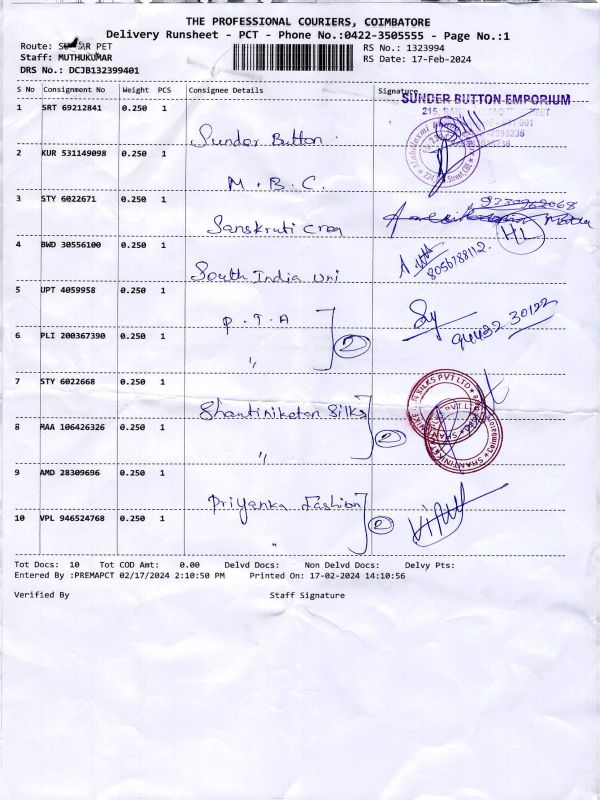 THE PROFESSIONAL COURIERS, COIMBATORE
Delivery Runsheet - PCT - Phone No.:0422-3505555 - Page No.:1
Route: PET
RS No.: 1323994
Staff: MUTHUKUMAR
RS Date: 17-Feb-2024
DRS No.: DCJB132399401
S No Consignment No Weight PCS Consignee Details Signature
SUNDER BUTTON EMPORIUM
1 SRT 69212841 0.250 1 Sunder Button
2 KUR 531149098 0.250 1 M.B.C.
3 STY 6022671 0.250 1 Sanskruti Crea
HL
4 BWD 30556100 0.250 1 South India Uni
8056788112.
5 UPT 4059958 0.250 1 P.T.A
94432 30122
6 PLI 200367390 0.250 1 " 2
7 STY 6022668 0.250 1 Shantiniketan Silks
8 MAA 106426326 0.250 1 " 2
9 AMD 28309696 0.250 1 Priyanka Fashion
10 VPL 946524768 0.250 1 " 2
Tot Docs: 10 Tot COD Amt: 0.00 Delvd Docs: Non Delvd Docs: Delvy Pts:
Entered By :PREMAPCT 02/17/2024 2:10:50 PM Printed On: 17-02-2024 14:10:56
Verified By Staff Signature